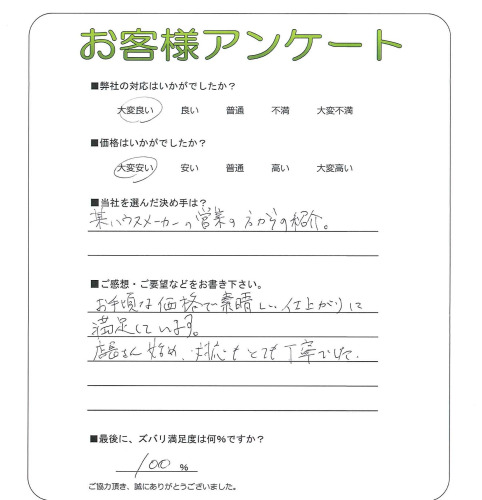 お客様アンケート
■弊社の対応はいかがでしたか?
大変良い 良い 普通 不満 大変不満
■価格はいかがでしたか?
大変安い 安い 普通 高い 大変高い
■当社を選んだ決め手は?
某ハウスメーカーの営業の方からの紹介。
■ご感想・ご要望などをお書き下さい。
お手頃な価格で素晴しい仕上がりに
満足しています。
店長さん始め、対応もとても丁寧でした。
■最後に、ズバリ満足度は何%ですか?
100 %
ご協力頂き、誠にありがとうございました。